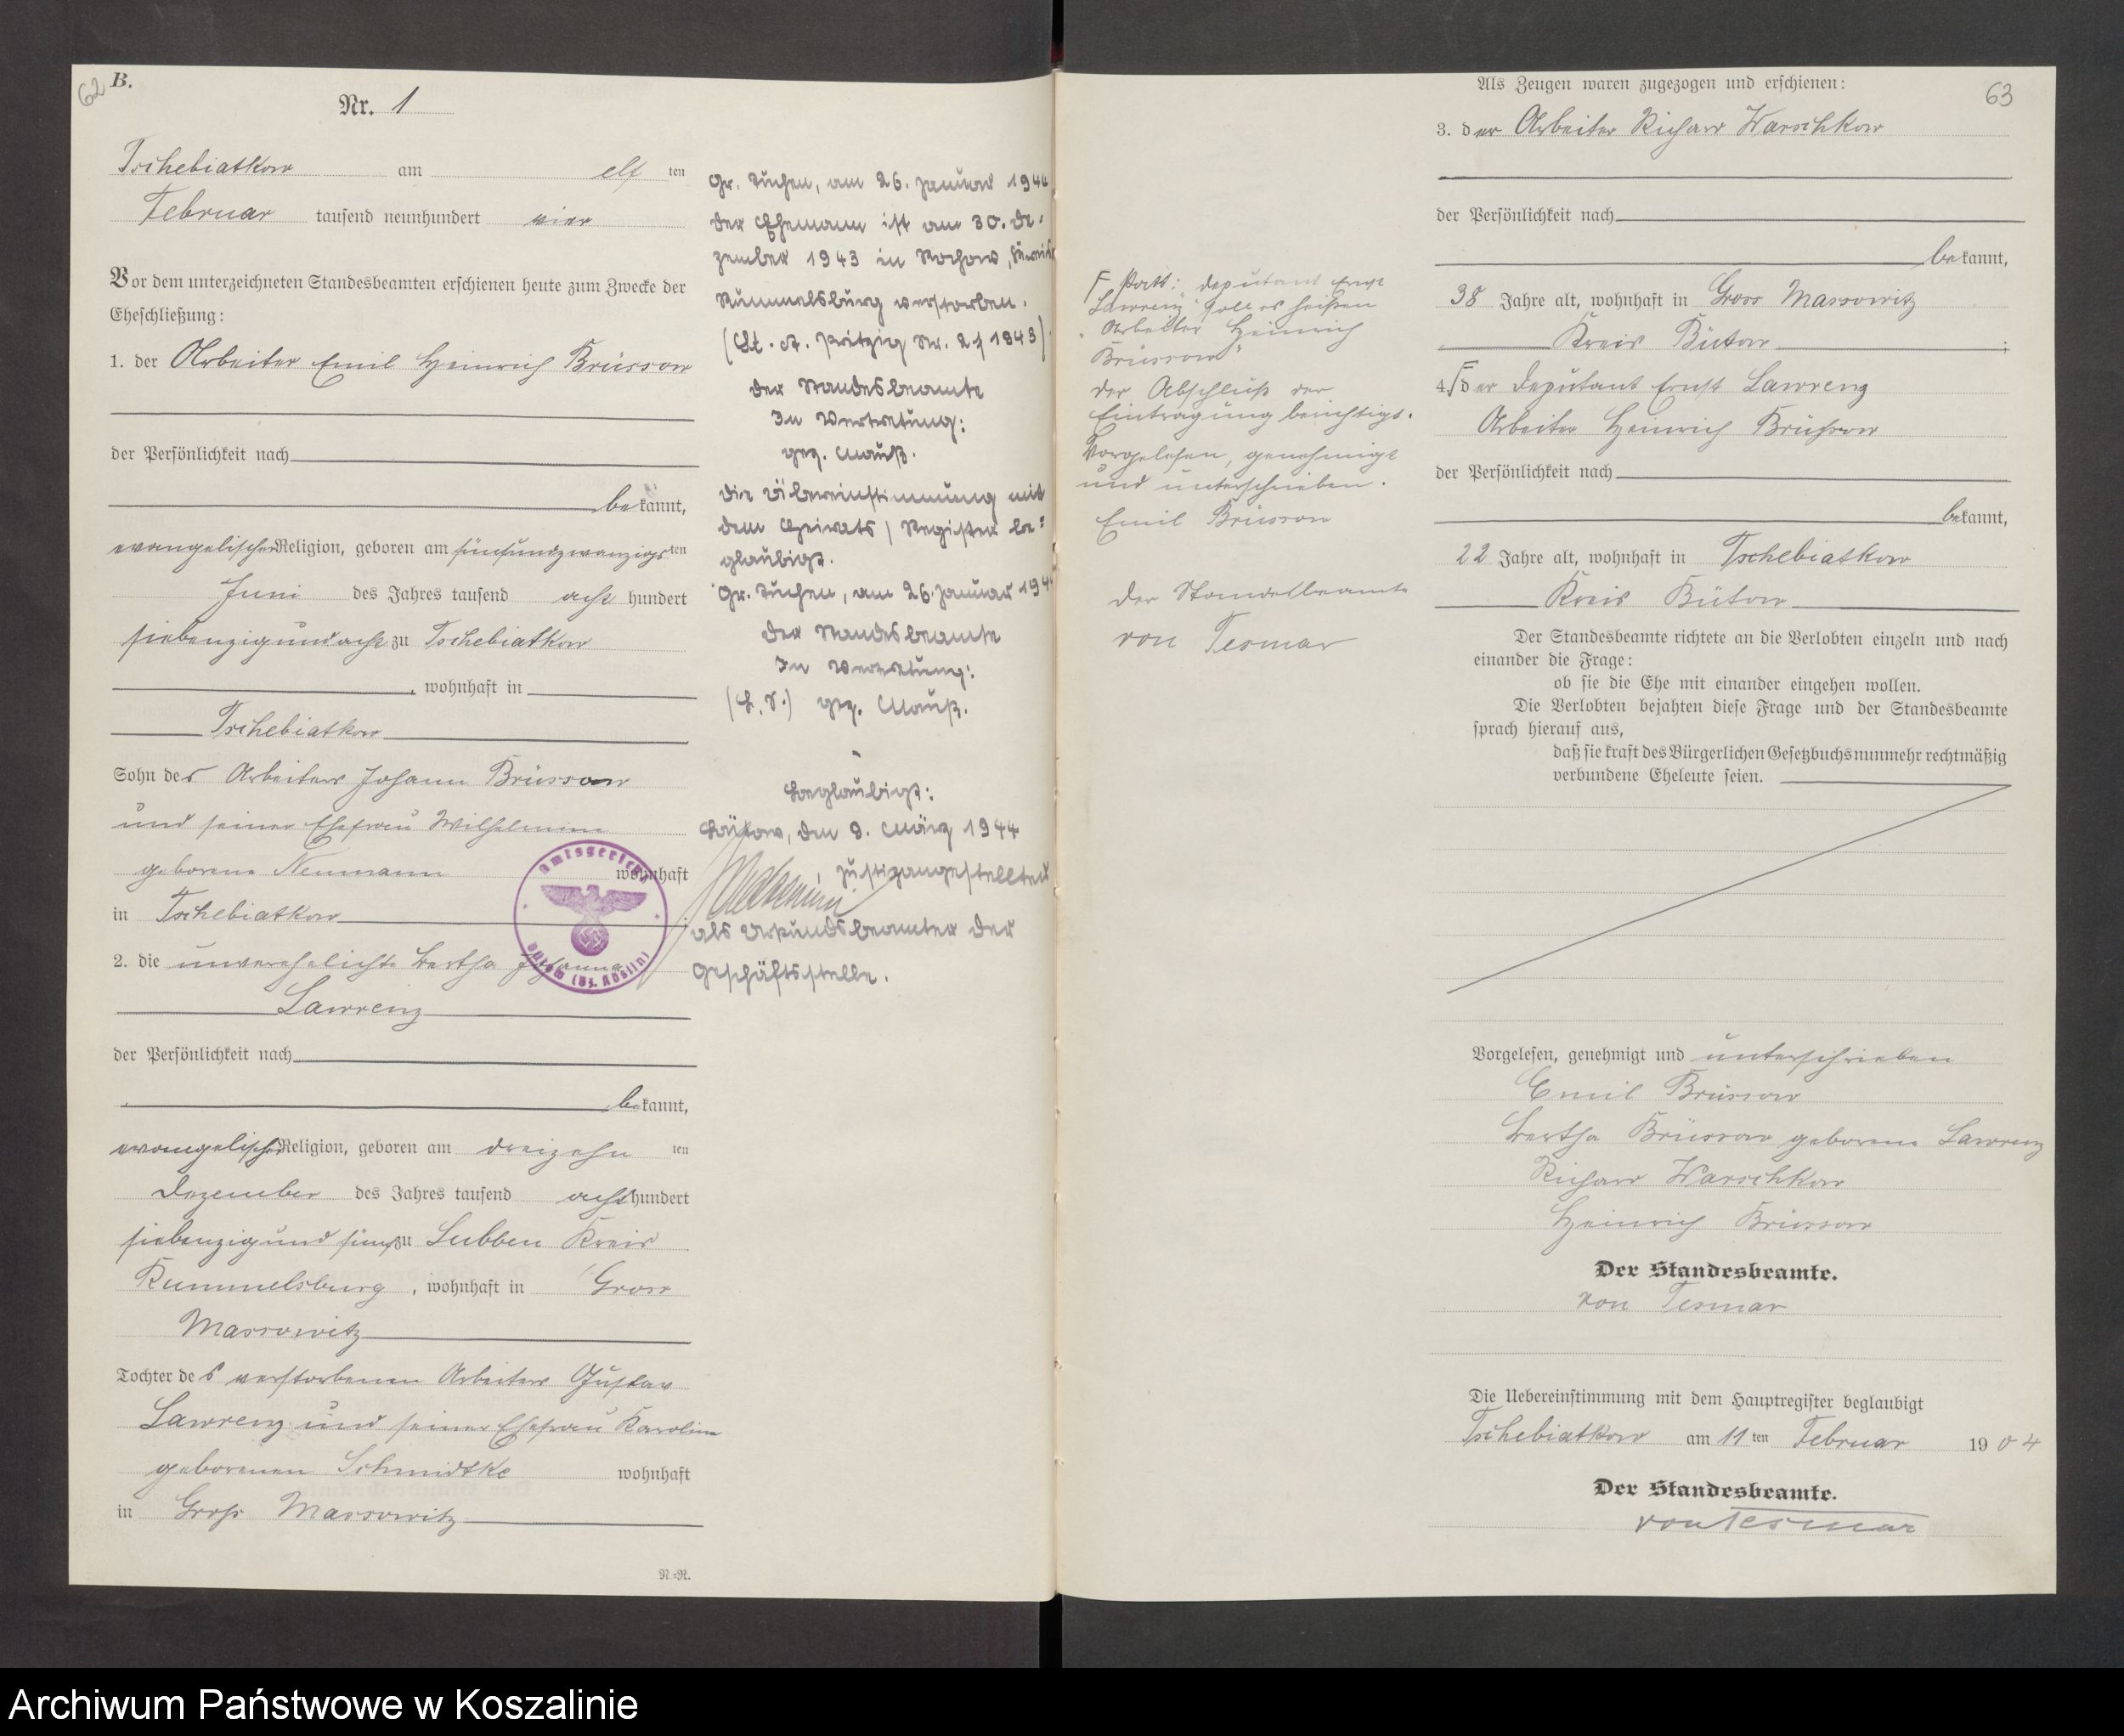 62
B.
Nr. 1
Tschebiatkow am elf ten
Februar tausend neunhundert vier
Vor dem unterzeichneten Standesbeamten erschienen heute zum Zwecke der
Eheschließung:
1. der Arbeiter Emil Heinrich Brüssow
der Persönlichkeit nach
bekannt,
evangelischer Religion, geboren am fünfundzwanzigsten
Juni des Jahres tausend acht hundert
siebenzigundacht zu Tschebiatkow
, wohnhaft in
Tschebiatkow
Sohn des Arbeiters Johann Brüssow
und seiner Ehefrau Wilhelmine
geborene Neumann wohnhaft
in Tschebiatkow
2. die unverehelichte Bertha Johanna
Lawrenz
der Persönlichkeit nach
bekannt,
evangelischer Religion, geboren am dreizehn ten
Dezember des Jahres tausend acht hundert
siebenzigund fünf zu Lubben Kreis
Rummelsburg, wohnhaft in Gross
Massowitz
Tochter des verstorbenen Arbeiters Gustav
Lawrenz und seiner Ehefrau Karoline
geborenen Schmidtke wohnhaft
in Gross Massowitz
N.=N.
Gr. Tuchen, am 26. Januar 1944
Der Ehemann ist am 30. De=
zember 1943 in Rochow,
Rummelsburg verstorben.
(St. A. Pritzig Nr. 21/1943)
Der Standesbeamte
In Vertretung:
gez. Mauß.
Die Übereinstimmung mit
dem Heirats/Register be=
glaubigt.
Gr. Tuchen, am 26. Januar 194
Der Standesbeamte
In Vertretung:
(L.S.) gez. Mauß.
Beglaubigt:
Bütow, den 9. März 1944
Justizangestellter
als Urkundsbeamter der
Geschäftsstelle.
Amtsgericht
Bütow (Bz. Köslin)
Statt: Deputant Ernst
Lawrenz" soll es heißen
"Arbeiter Heinrich
Brüssow"
Der Abschluß der
Eintragung berichtigt.
Vorgelesen, genehmigt
und unterschrieben.
Emil Brüssow
Der Standesbeamte
von Tesmar
63
Als Zeugen waren zugezogen und erschienen:
3. der Arbeiter Richard Warschkow
der Persönlichkeit nach
bekannt,
38 Jahre alt, wohnhaft in Gross Massowitz
Kreis Bütow;
4. der Deputant Ernst Lawrenz
Arbeiter Heinrich Brüssow
der Persönlichkeit nach
bekannt,
22 Jahre alt, wohnhaft in Tschebiatkow
Kreis Bütow
Der Standesbeamte richtete an die Verlobten einzeln und nach
einander die Frage:
ob sie die Ehe mit einander eingehen wollen.
Die Verlobten bejahten diese Frage und der Standesbeamte
sprach hierauf aus,
daß sie kraft des Bürgerlichen Gesetzbuchs nunmehr rechtmäßig
verbundene Eheleute seien.
Vorgelesen, genehmigt und unterschrieben
Emil Brüssow
Bertha Brüssow geborene Lawrenz
Richard Warschkow
Heinrich Brüssow
Der Standesbeamte.
von Tesmar
Die Uebereinstimmung mit dem Hauptregister beglaubigt
Tschebiatkow am 11 ten Februar 1904
Der Standesbeamte.
von Tesmar
Archiwum Państwowe w Koszalinie